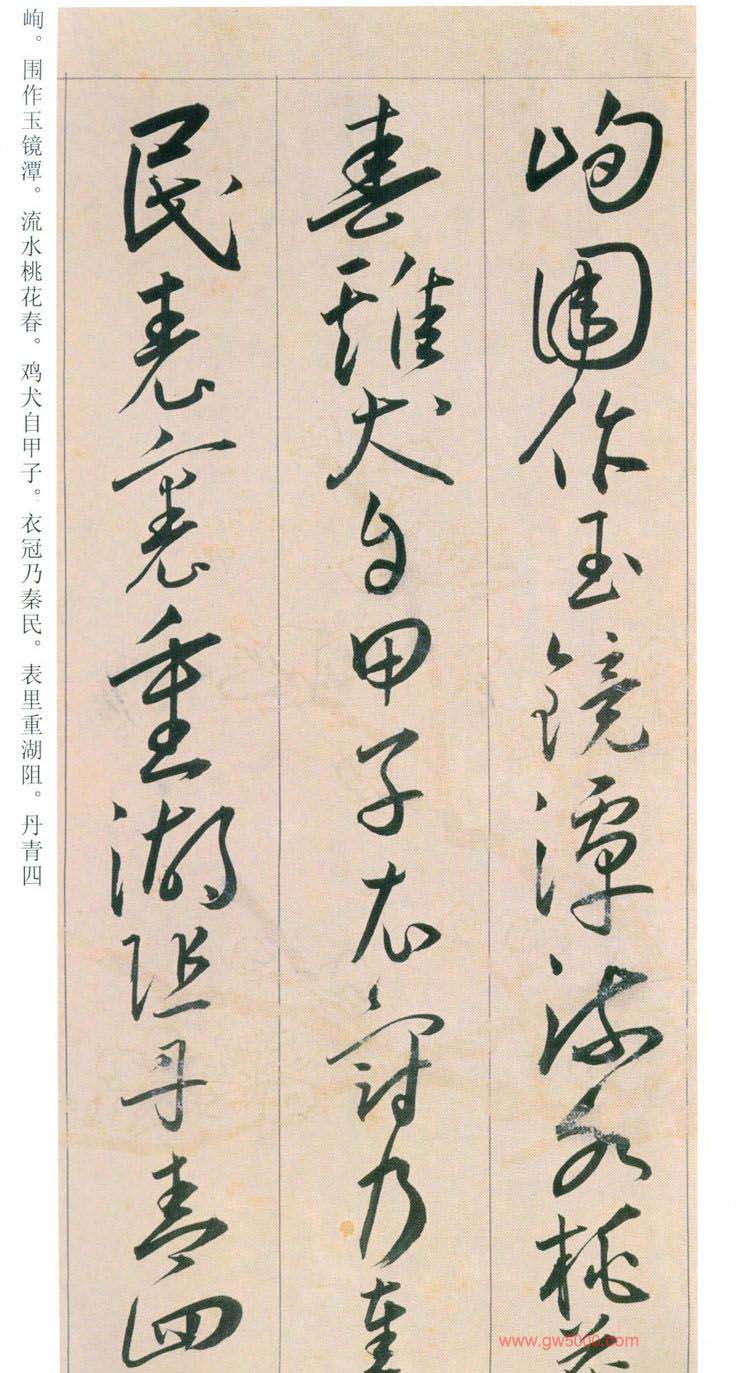 峋围作玉镜潭流水桃花
春鸡犬自甲子衣冠乃秦
民表里重湖阻丹青四
峋。围作玉镜潭。流水桃花春。鸡犬自甲子。衣冠乃秦民。表里重湖阻。丹青四
www.gw5000.com